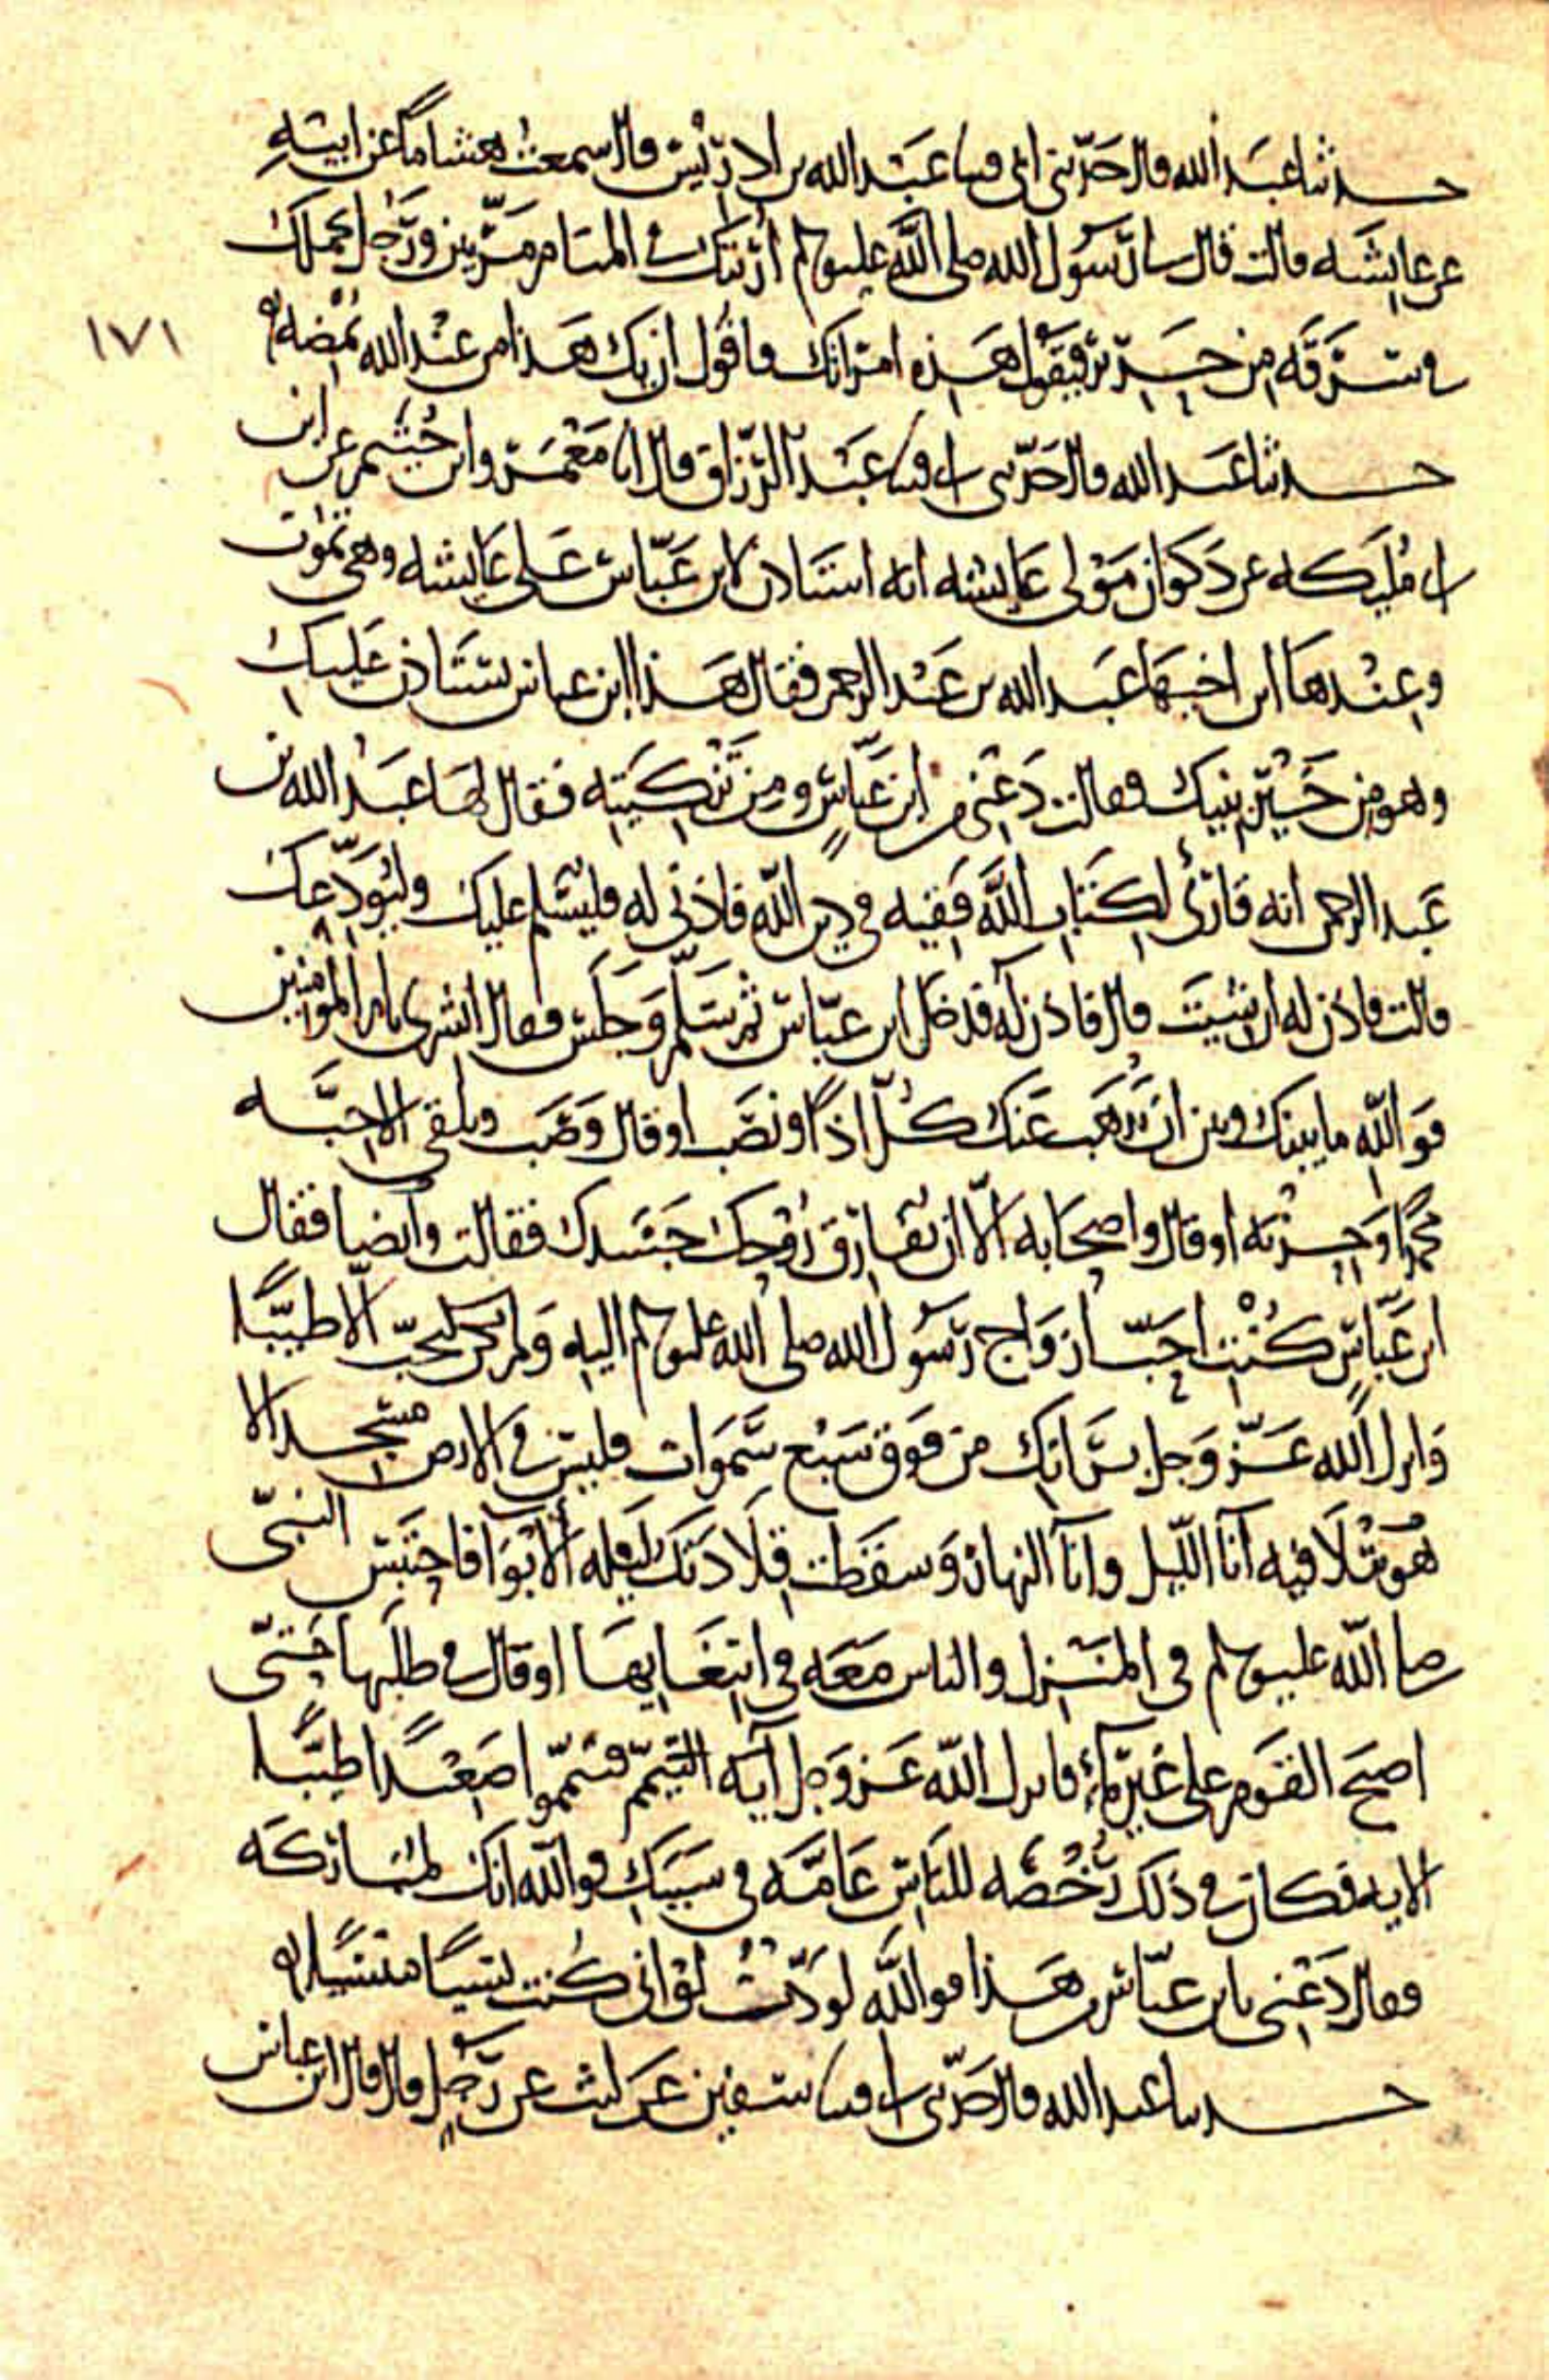 حدثنا عبد الله قال حدثني ابي قثنا عبد الله بن ادريس قال سمعت هشاما عن ابيه
عن عايشه قالت قال رسول الله صلى الله عليه وسلم اريتك في المنام مرتين ورجل يحملك
في سرقه من حرير فيقول هذه امراتك فاقول ان يك هذا من عند الله يمضه
١٧١
حدثنا عبد الله قال حدثني ابي قثنا عبد الرزاق قال انا معمر وابن خثيم عن ابن
ابي مليكه عن ذكوان مولى عايشه انه استاذن لابن عباس على عايشه وهي تموت
وعندها ابن اخيها عبد الله بن عبد الرحمن فقال هذا ابن عباس يستاذن عليك
وهو من خير بنيك فقالت دعني من ابن عباس ومن تزكيته فقال لها عبد الله بن
عبد الرحمن انه قارئ لكتاب الله فقيه في دين الله فاذني له فليسلم عليك وليودعك
قالت فاذن له ان شيت قال فاذن له فدخل ابن عباس ثم سلم وجلس فقال ابشري يا ام المومنين
فوالله ما بينك وبين ان يذهب عنك كل اذا ونصب او قال وصب وتلقي الاحبه
محمدا وحزبه او قال واصحابه الا ان يفارق روحك جسدك فقالت وايضا فقال
ابن عباس كنت احب ازواج رسول الله صلى الله عليه وسلم اليه ولم يكن يحب الا طيبا
وانزل الله عز وجل براتك من فوق سبع سموات فليس في الارض مسجد الا
هو يتلا فيه انا الليل وانا النهار وسقطت قلادتك ليله الابوا فاحتبس النبي
صلى الله عليه وسلم في المنزل والناس معه في ابتغايها او قال في طلبها حتى
اصبح القوم على غير ماء فانزل الله عز وجل آيه التيمم فتيمموا صعيدا طيبا
الايه فكان في ذلك رخصه للناس عامه في سببك فوالله انك لمباركه
فقال دعني يا بن عباس من هذا فوالله لوددت لو اني كنت نسيا منسيا
حدثنا عبد الله قال حدثني ابي قثنا سفين عن ليث عن رجل قال قال ابن عباس